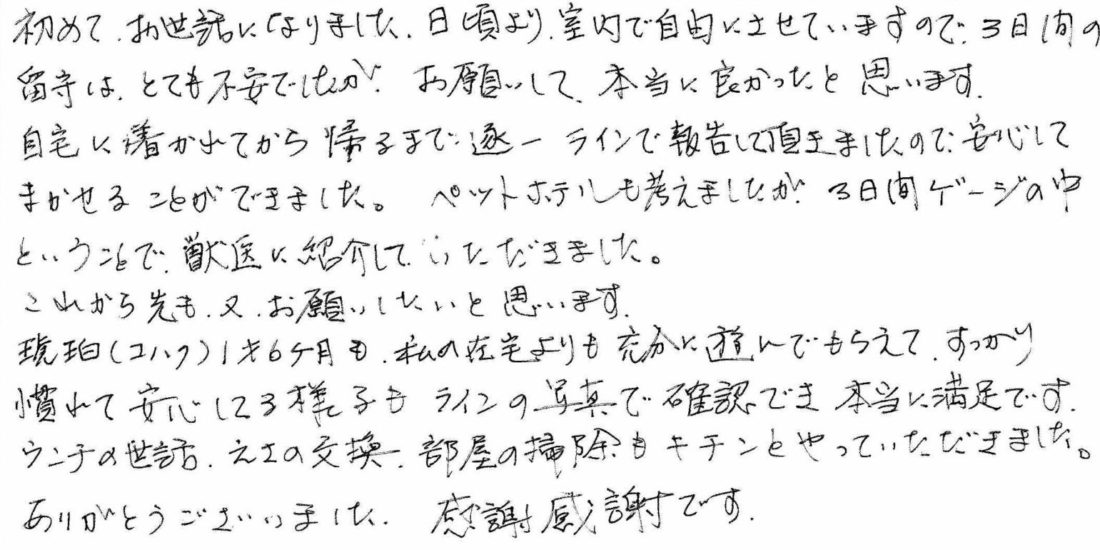 初めて、お世話になりました。日頃より、室内で自由にさせていますので、3日間の
留守は、とても不安でしたが、お願いして、本当に良かったと思います。
自宅に着かれてから帰るまで、逐一ラインで報告して頂きましたので、安心して
まかせることができました。ペットホテルも考えましたが、3日間ゲージの中
ということで、獣医に紹介して、いただきました。
これから先も、又、お願いしたいと思います。
琥珀(コハク)1才6ヶ月も、私の在宅よりも充分に遊んでもらえて、すっかり
慣れて安心してる様子もラインの写真で確認でき本当に満足です。
ウンチの世話、えさの交換、部屋の掃除もキチンとやっていただきました。
ありがとうございました。感謝感謝です。